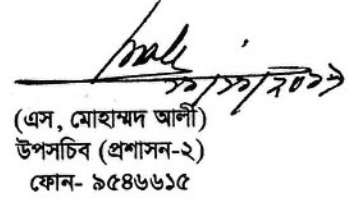 (এস, মোহাম্মদ আলী)
উপসচিব (প্রশাসন-২)
ফোন- ৯৫৪৬৬১৫